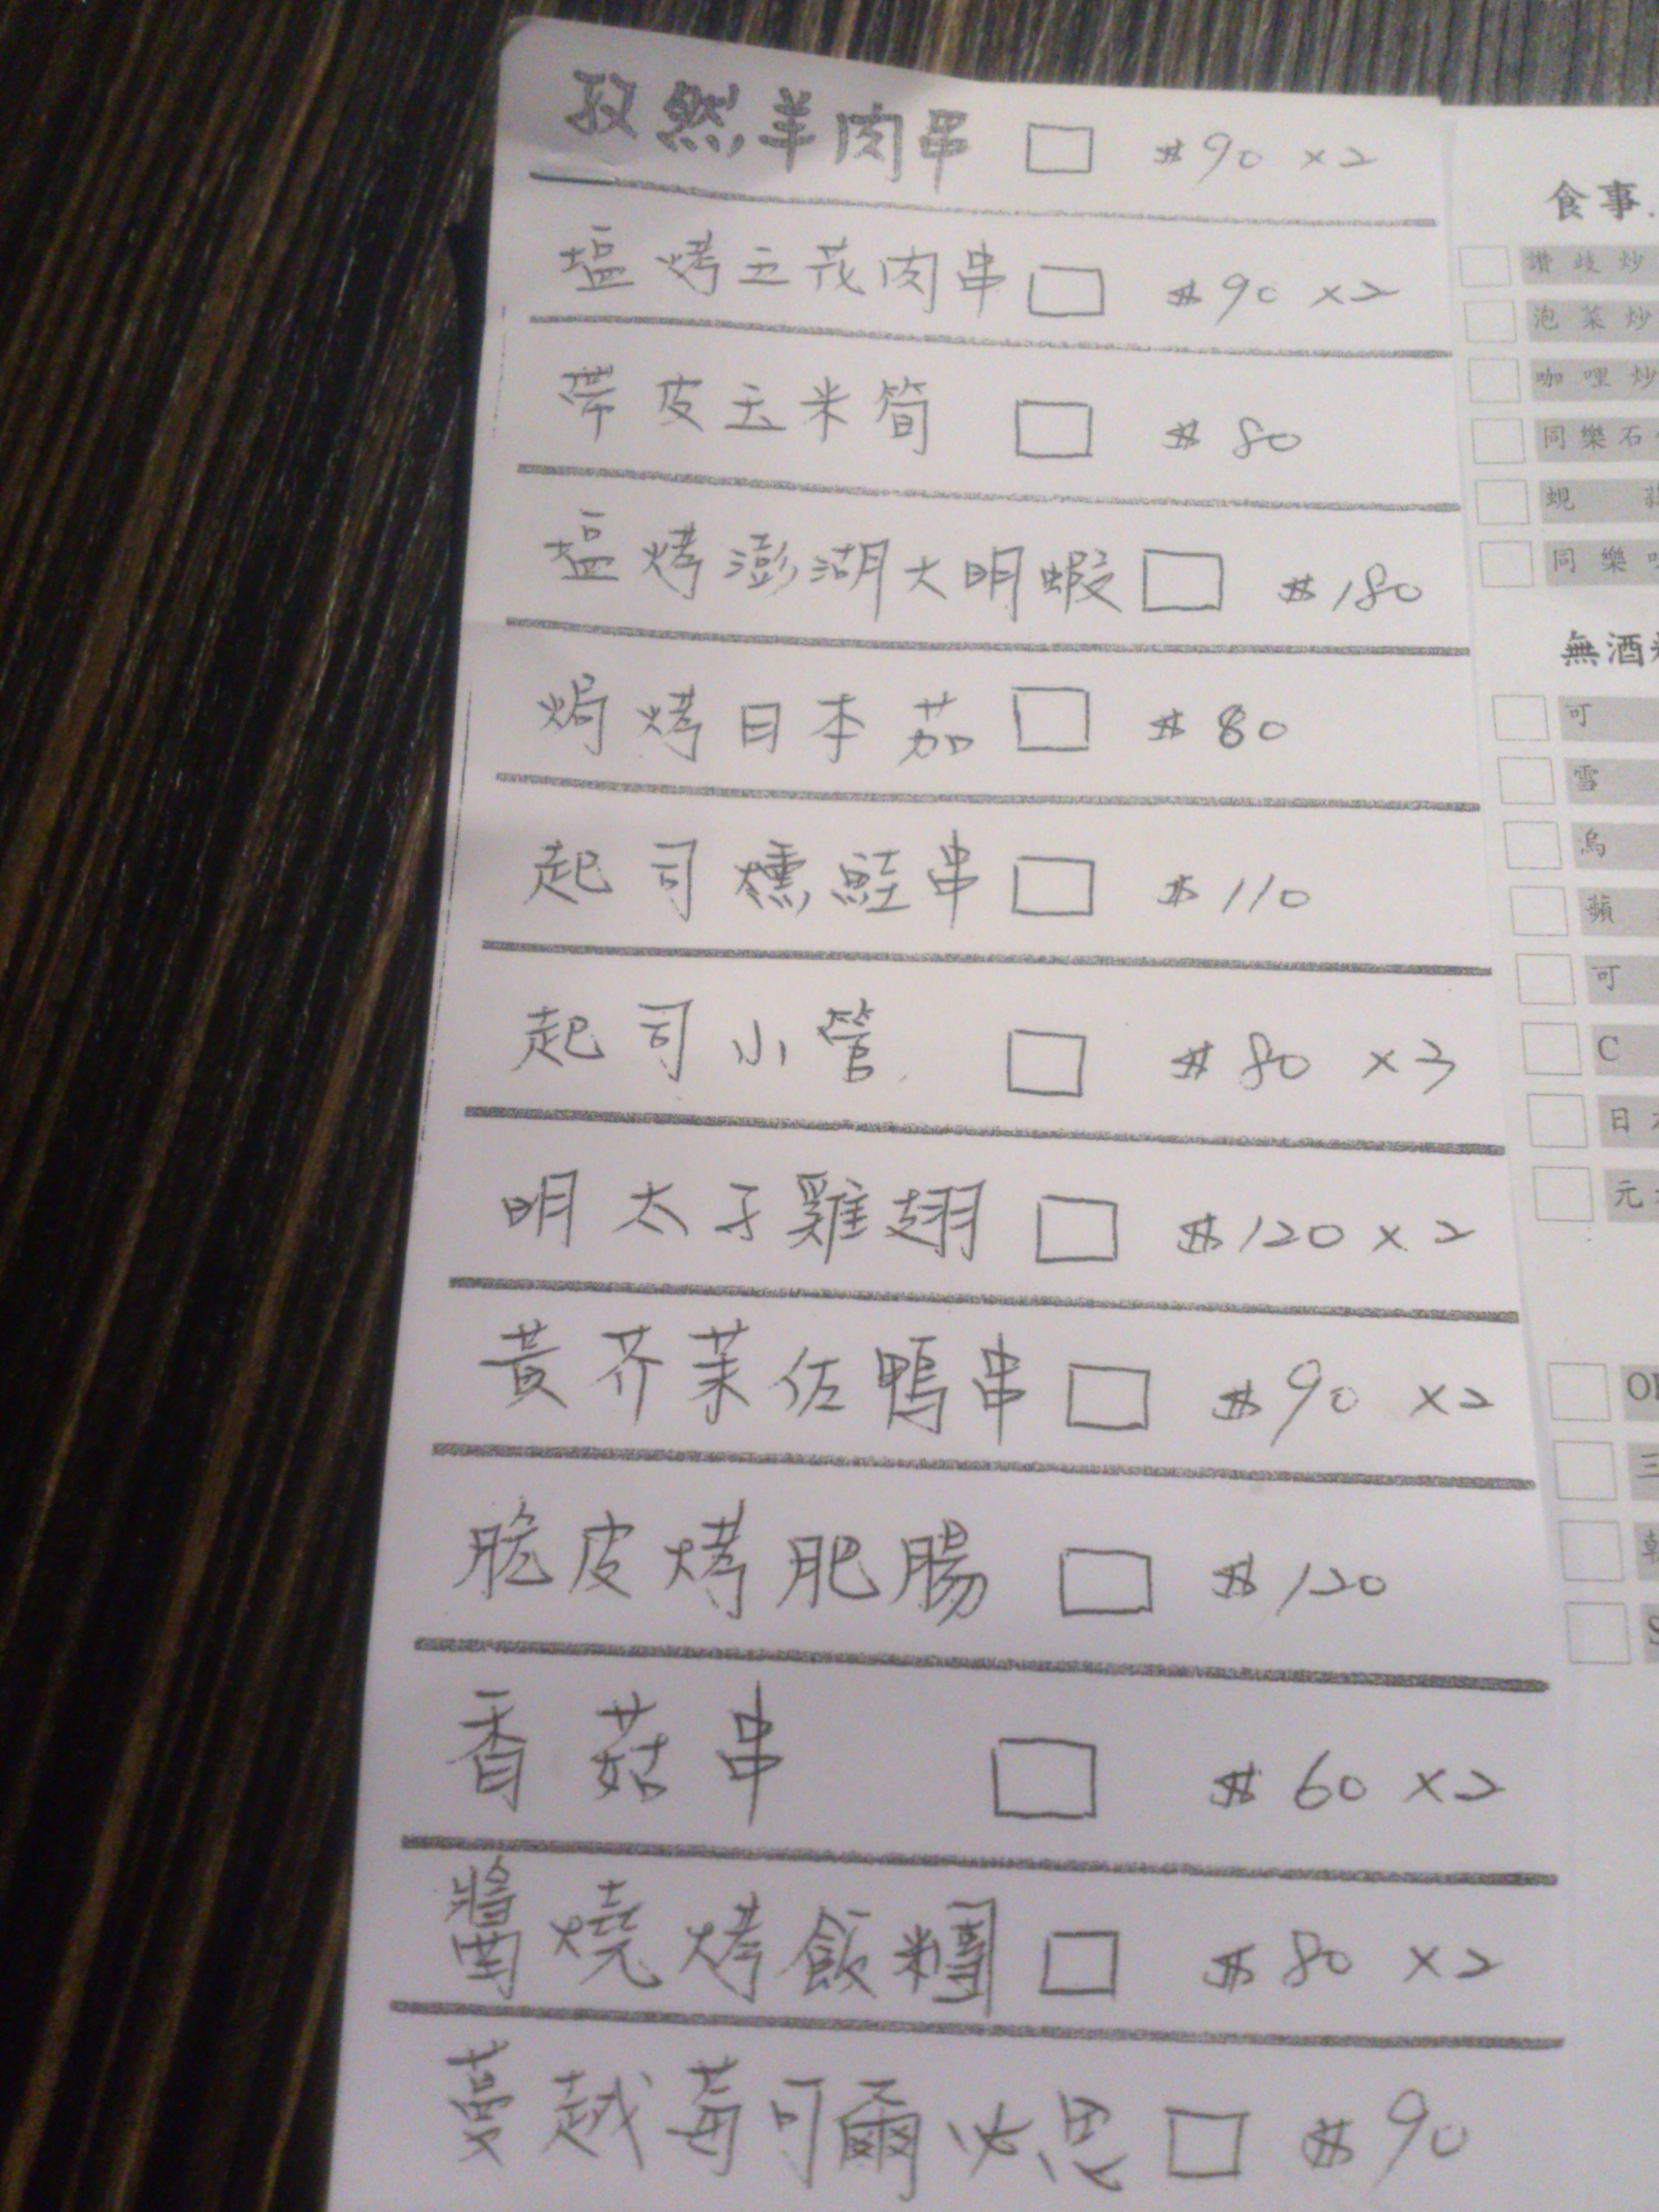 孜然羊肉串 □ $90 x2
塩烤五花肉串 □ $90 x2
帶皮玉米筍 □ $80
塩烤澎湖大明蝦 □ $180
焗烤日本茄 □ $80
起司燻鮭串 □ $110
起司小管 □ $80 x3
明太子雞翅 □ $120 x2
黃芥茉佐鴨串 □ $90 x2
脆皮烤肥腸 □ $120
香菇串 □ $60 x2
醬燒烤飯糰 □ $80 x2
蔓越莓可爾必思 □ $90
食事.
讚岐炒
泡菜炒
咖哩炒
同樂石
蜆
同樂
無酒
可
雪
烏
蘋
可
C
日本
元
三